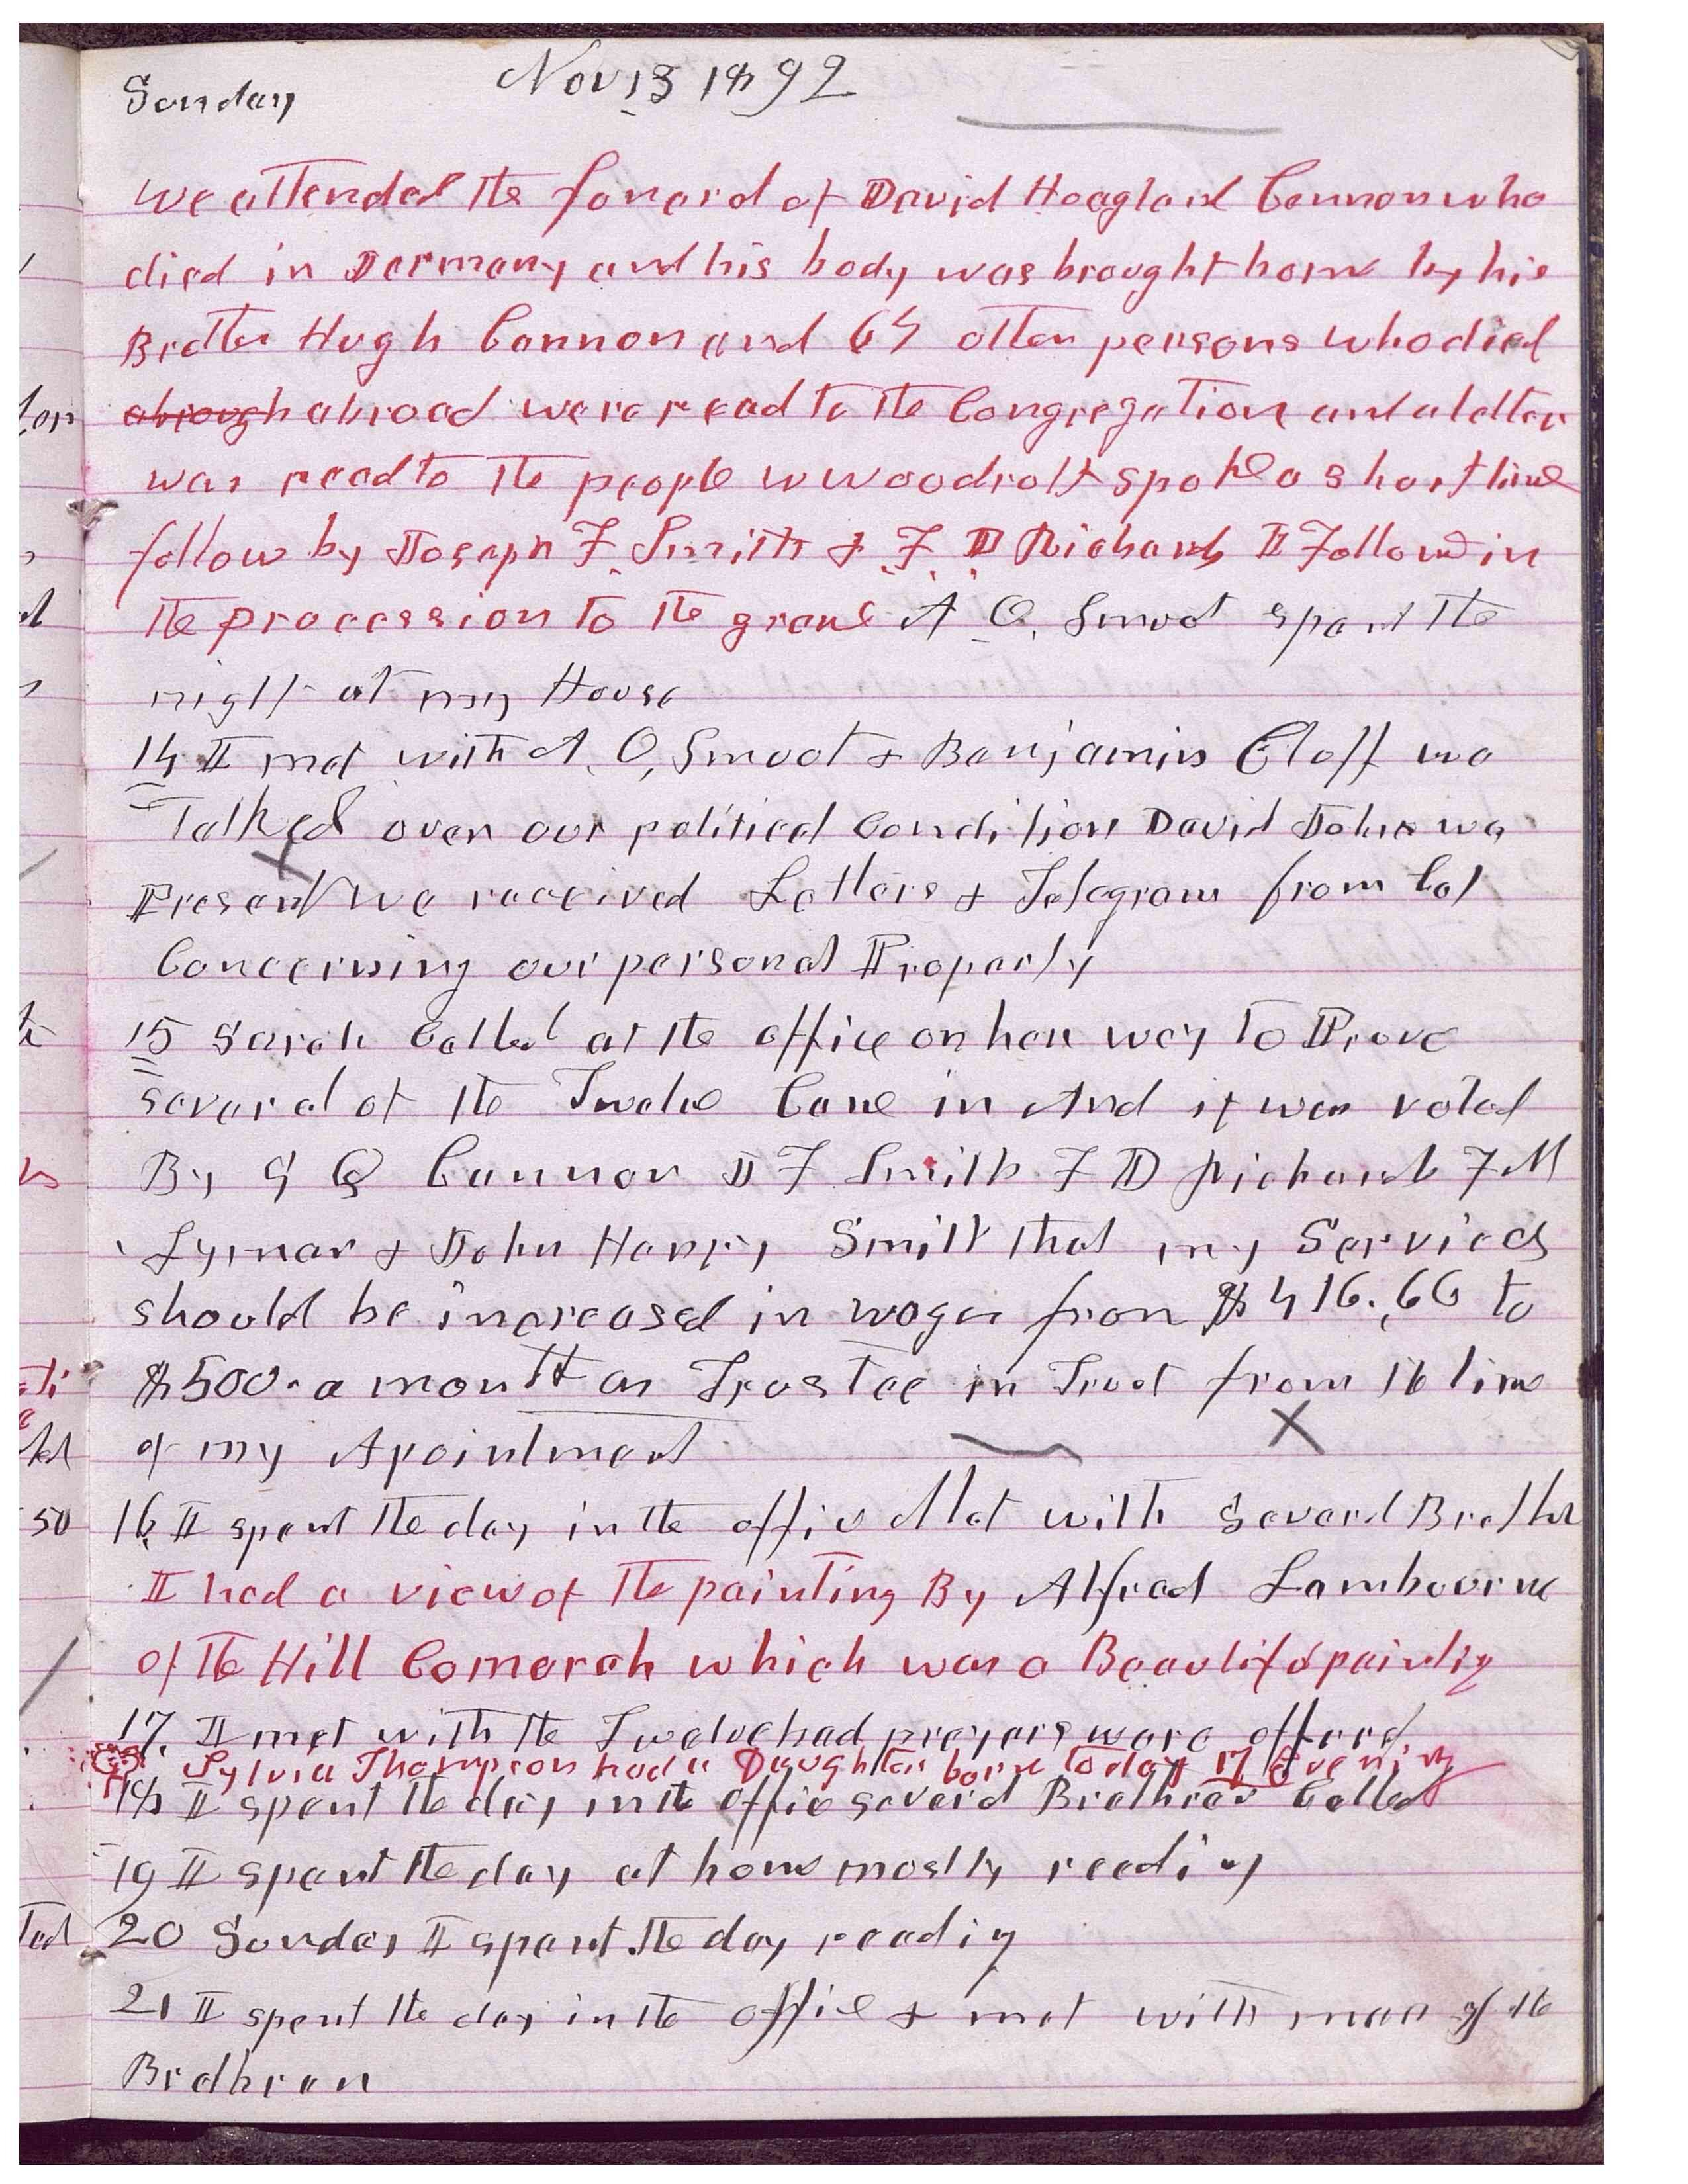 Sunday Nov 13 1892
we attended the funeral of David Hoagland Cannon who
died in Germany and his body was brought home by his
Brother Hugh Cannon and 65 other persons who died
abrough abroad were read to the Congregation and a letter
was read to the people W Woodruff spoke a short time
follow by Joseph F Smith & F D Richards I Followed in
the procession to the grave A O. Smoot spent the
night at my House
14 I met with A. O, Smoot & Benjamin Cluff we
Talked over our political Condition David John wa
Present We received Letters & Telegram from Cal
Concerning our personal Property
15 Sarah Called at the office on her way to Provo
several of the Twelve Came in And it was voted
By G Q Cannon J F Smith F D Richards F M
Lyman & John Henry Smith that my Services
should be increased in wages from $416.66 to
$500. a month as Trustee in Trust from the time
of my Apointment
16. I spent the day in the office Met with Several Brethr
I had a view of the painting By Alfred Lambourne
of the Hill Comorah which was a Beautiful painting
17. I met with the Twelve had prayers were offered
Sylvia Thompson had a Daughter born to day 17 Evening
18 I spent the day in the office several Brethren Called
19 I spent the day at home mostly reading
20 Sunday I spent the day reading
21 I spent the day in the office & met with man of the
Brethren